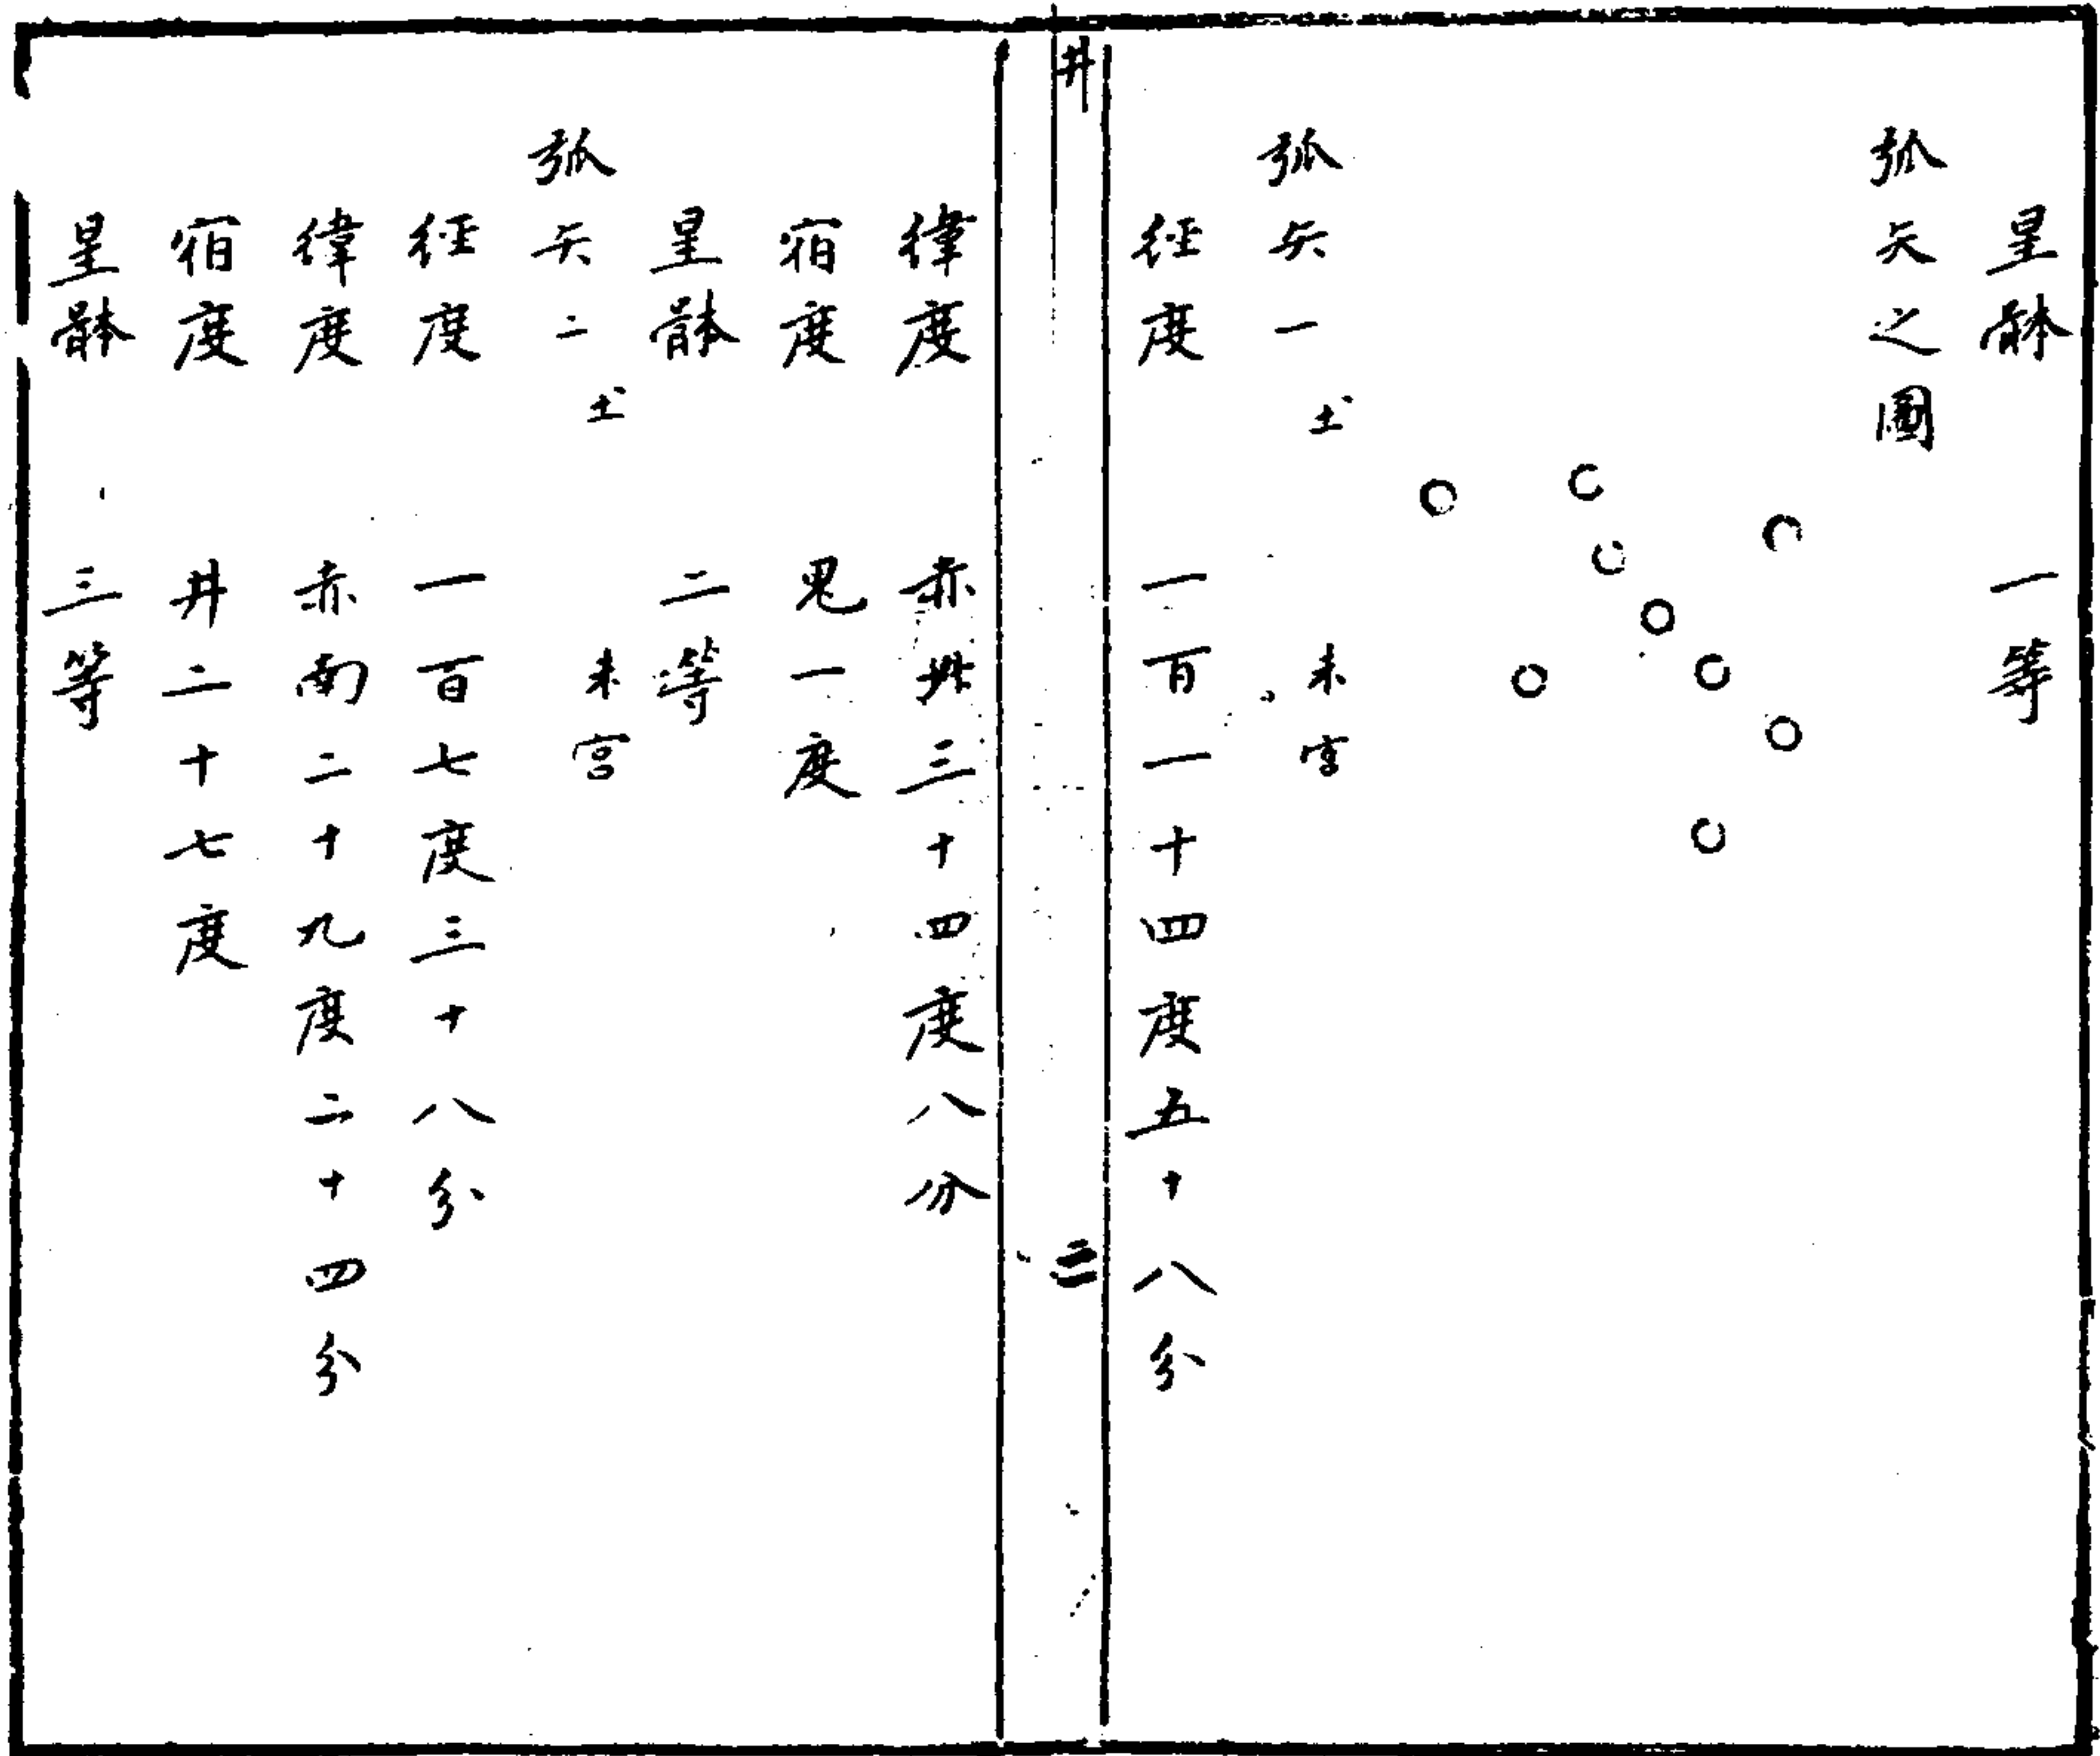 星體 一等
弧矢之圖
弧矢一 土 未宮
徑度 一百一十四度五十八分
井 三
緯度 赤北三十四度八分
宿度 鬼一度
星體 二等
弧矢二 土 未宮
徑度 一百七度三十八分
緯度 赤南二十九度二十四分
宿度 井二十七度
星體 三等